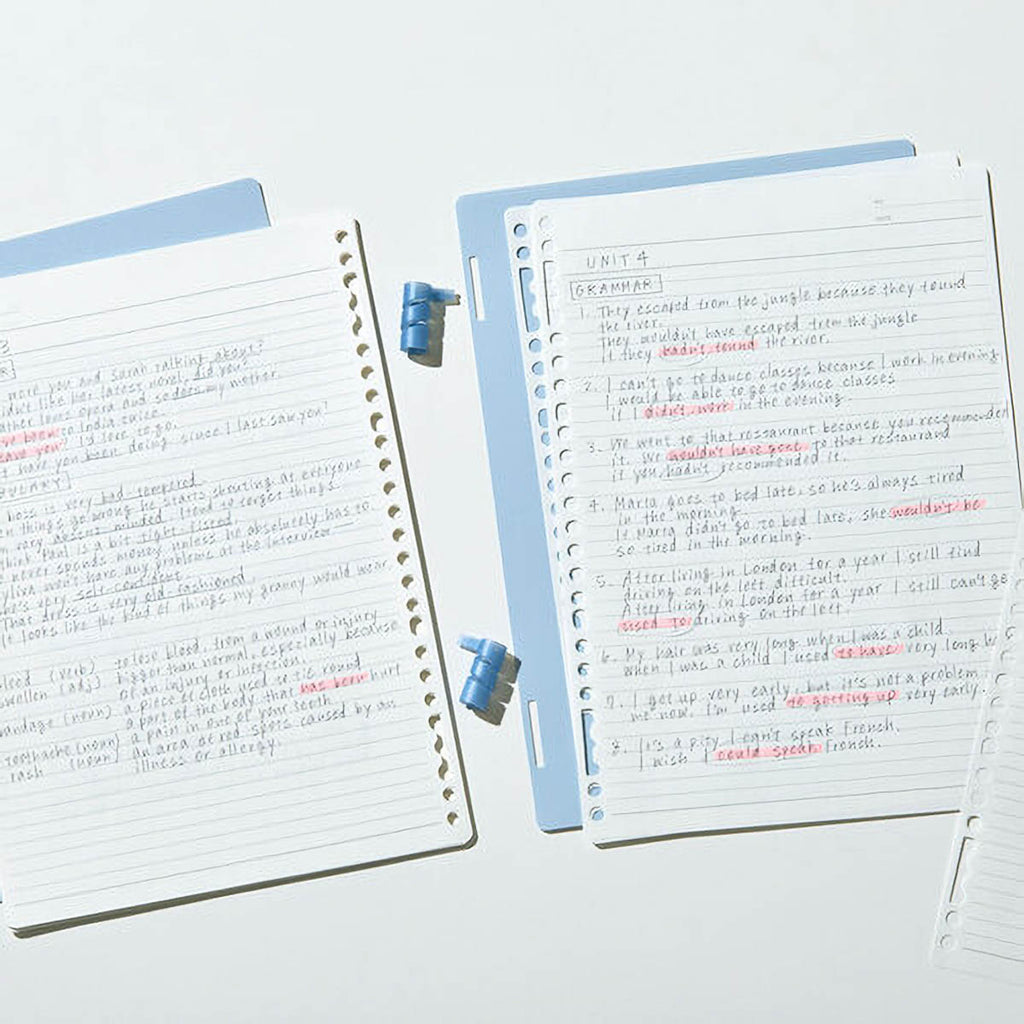 3
R
more you and Sarah talking about?
didn't like her latest novel, did you?
ather loves opera and so does my mother.
ve been to India twice.
eave you? I'd love to go.
have you been doing since I last saw you?
BULARY
boss is very bad tempered
things go wrong he starts shouting at everyone
m very absent-minded. I tend to forget things.
think Paul is a bit tight fisted
never spends money unless he absolutely has to
ylvia won't have any problems at the interview
he's very self confident.
That dress is very old-fashioned
It looks like the kind of things my granny would wear.
bleed (verb) to lose blood, from a wound or injury
swollen (adj) bigger than normal, especially because
of an injury or infection.
bandage (noun) a piece of cloth used to tie round
a part of the body that has been hurt
toothache (noun) a pain in one of your teeth
rash (noun) an area of red spots caused by an
illness or allergy.
UNIT 4
GRAMMAR
1. They escaped from the jungle because they found
the river.
They wouldn't have escaped from the jungle
if they hadn't found the river.
2. I can't go to dance classes because I work in evening
I would be able to go to dance classes
if I didn't work in the evening.
3. We went to that restaurant because you recommended
it. We wouldn't have gone to that restaurant
if you hadn't recommended it.
4. Marta goes to bed late, so he's always tired
in the morning.
If Marta didn't go to bed late, she wouldn't be
so tired in the morning.
5. After living in London for a year I still find
driving on the left difficult.
After living in London for a year I still can't ge
used to driving on the left
6. My hair was very long when I was a child.
when I was a child I used to have very long
7. I get up very early, but it's not a problem
me now. I'm used to getting up very early.
8. It's a pity I can't speak French.
I wish I could speak French.